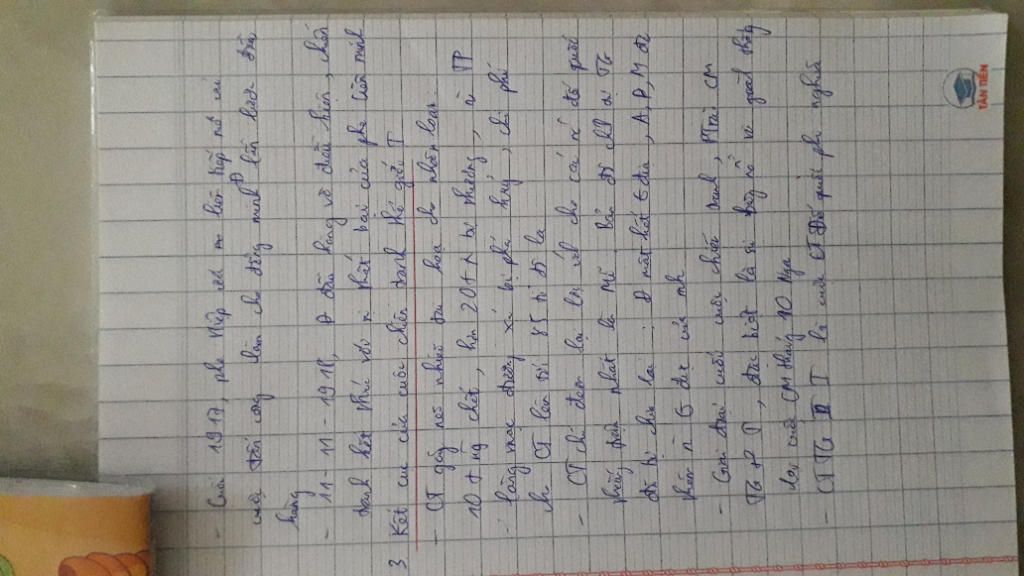 - Cuối 1917, phe Hiệp ước liên tiếp mở các
cuộc tấn công làm cho đồng minh Đ lần lượt đầu
hàng
- 11 - 11 - 1918, Đ đầu hàng vô điều kiện, chiến
tranh kết thúc với sự thất bại của phe Liên minh
3 Kết cục của cuộc chiến tranh thế giới T
- CT gây nên nhiều tai họa cho nhân loại:
10 tr ng chết, hơn 20 tr bị thương,
làng mạc đường xá bị phá hủy, chi phí
cho CT lên tới 85 tỉ đô la
- CT chỉ đem lại lợi ích cho các n đế quốc
thắng trận nhất là Mĩ, bản đồ TG
đã bị chia lại: Đ mất hết t đia, A, P, M đc
thêm n t đia của mh
- Giai đoạn cuối cuối chiến tranh, PTrào CM
TG, đặc biệt là sự bùng nổ và giành thắng
lợi của CM tháng 10 Nga
- CTTG T là cuộc CT Đế quốc phi nghĩa
TÂN TIẾN